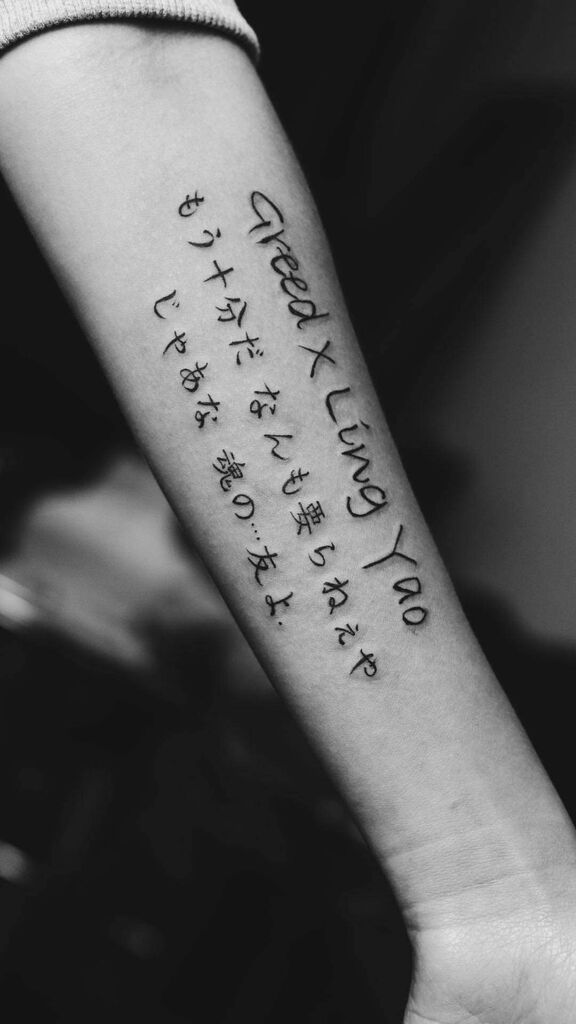 Greed x Ling Yao
もう十分だ なんも要らねぇや
じゃあな 魂の…友よ.